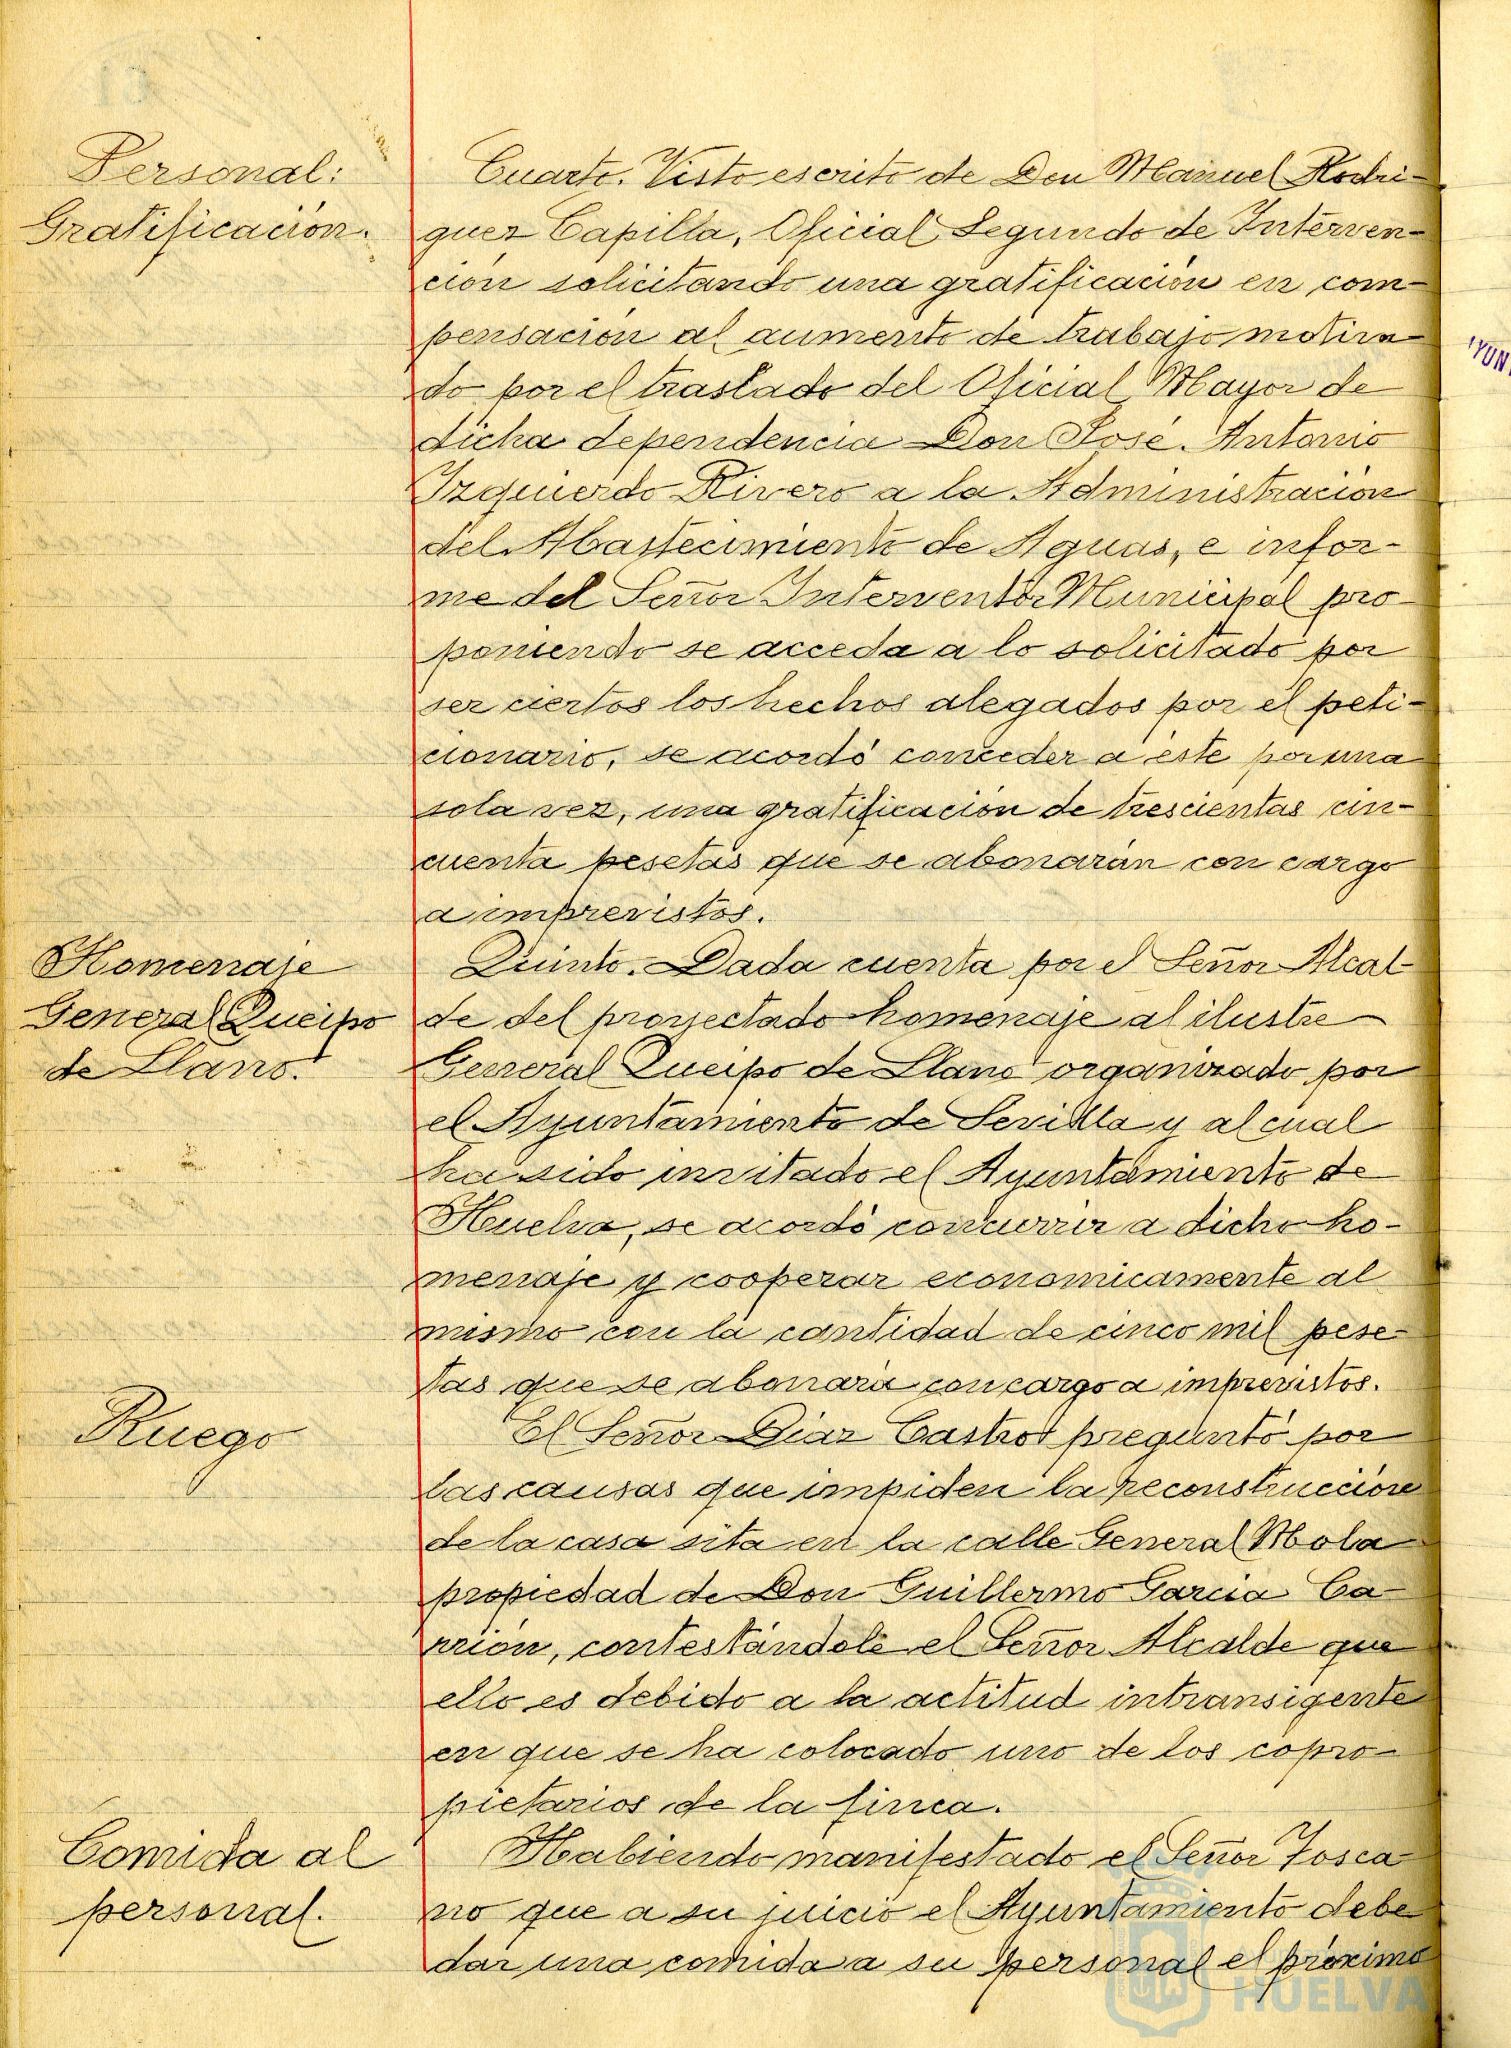 Personal:
Gratificación.
Cuarto. Visto escrito de Don Manuel Rodri-
guez Capilla, Oficial Segundo de Interven-
ción solicitando una gratificación en com-
pensación al aumento de trabajo motiva
do por el traslado del Oficial Mayor de
dicha dependencia Don José Antonio
Izquierdo Rivero a la Administración
del Abastecimiento de Aguas, e infor-
me del Señor Interventor Municipal pro
poniendo se acceda a lo solicitado por
ser ciertos los hechos alegados por el peti-
cionario, se acordó conceder a éste por una
sola vez, una gratificación de trescientas cin-
cuenta pesetas que se abonarán con cargo
a imprevistos.
Homenaje
General Queipo
de Llano.
Quinto. Dada cuenta por el Señor Alcal
de del proyectado homenaje al ilustre
General Queipo de Llano organizado por
el Ayuntamiento de Sevilla y al cual
ha sido invitado el Ayuntamiento de
Huelva, se acordó concurrir a dicho ho-
menaje y cooperar economicamente al
mismo con la cantidad de cinco mil pese-
tas que se abonará con cargo a imprevistos.
Ruego
El Señor Diaz Castro preguntó por
las causas que impiden la reconstrucción
de la casa sita en la calle General Mola
propiedad de Don Guillermo Garcia Ca-
rrión, contestándole el Señor Alcalde que
ello es debido a la actitud intransigente
en que se ha colocado uno de los copro-
pietarios de la finca.
Comida al
personal.
Habiendo manifestado el Señor Tosca
no que a su juicio el Ayuntamiento debe
dar una comida a su personal el próximo
HUELVA